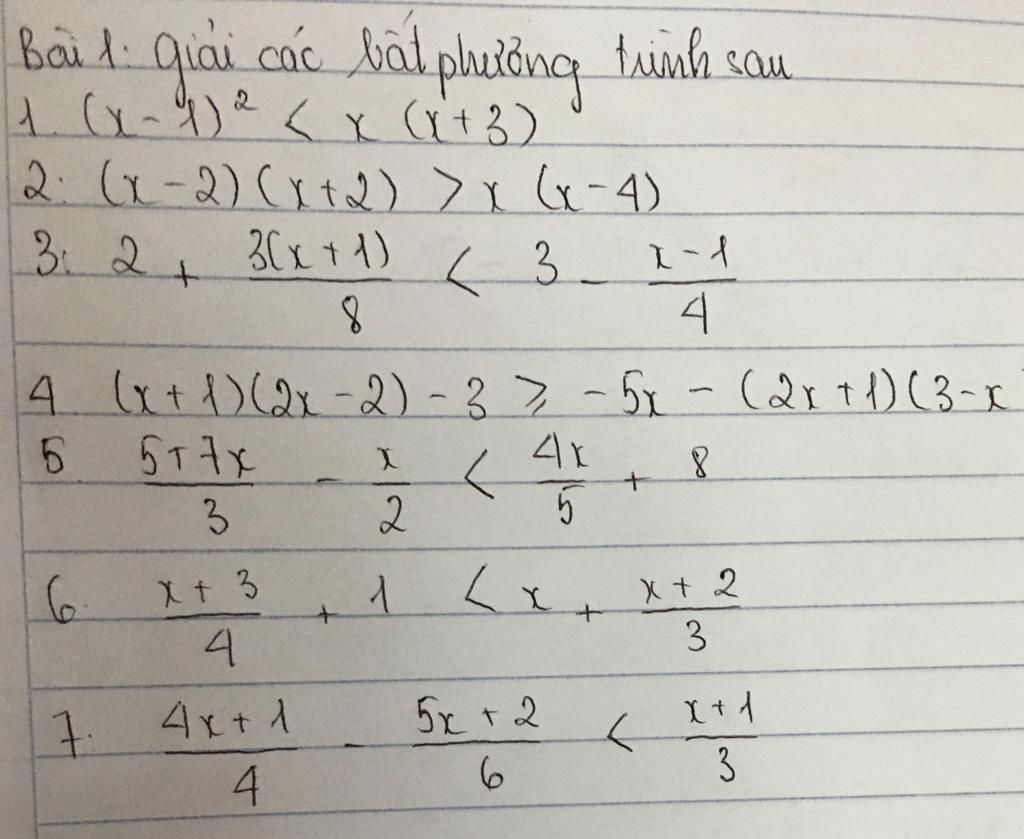 Bài 1: Giải các bất phương trình sau
1. (x-1)² < x (x+3)
2: (x-2)(x+2) > x (x-4)
3: 2 + 3(x+1)/8 < 3 - x-1/4
4. (x+1)(2x-2) - 3 ⩾ -5x - (2x+1)(3-x
5 5+7x/3 - x/2 < 4x/5 + 8
6. x+3/4 + 1 < x + x+2/3
7. 4x+1/4 - 5x+2/6 < x+1/3